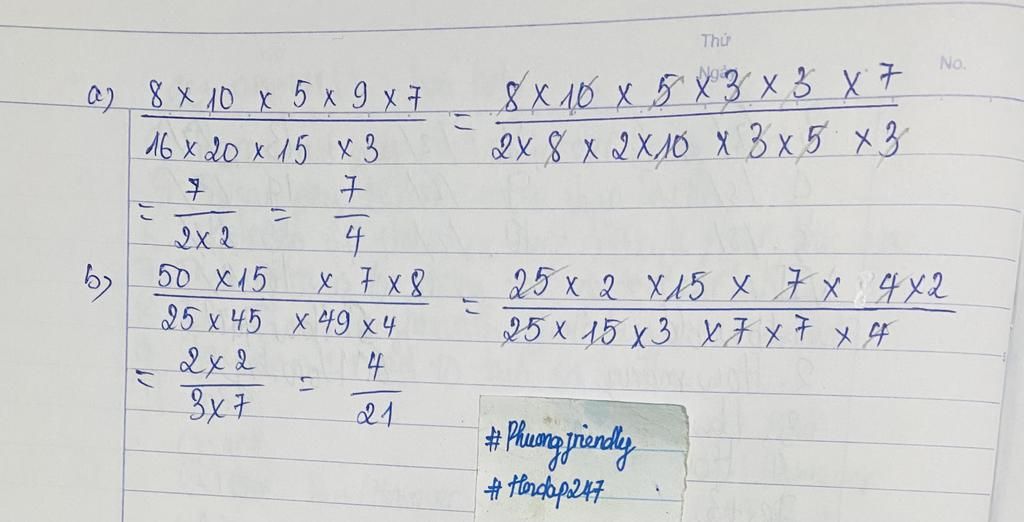 Thứ
Ngày
No.
a) 8 × 10 × 5 × 9 × 7 / 16 × 20 × 15 × 3 = 8 × 10 × 5 × 3 × 3 × 7 / 2 × 8 × 2 × 10 × 3 × 5 × 3
= 7 / 2 × 2 = 7 / 4
b) 50 × 15 × 7 × 8 / 25 × 45 × 49 × 4 = 25 × 2 × 15 × 7 × 4 × 2 / 25 × 15 × 3 × 7 × 7 × 4
= 2 × 2 / 3 × 7 = 4 / 21
#Phuongfriendly
#Hoidap247